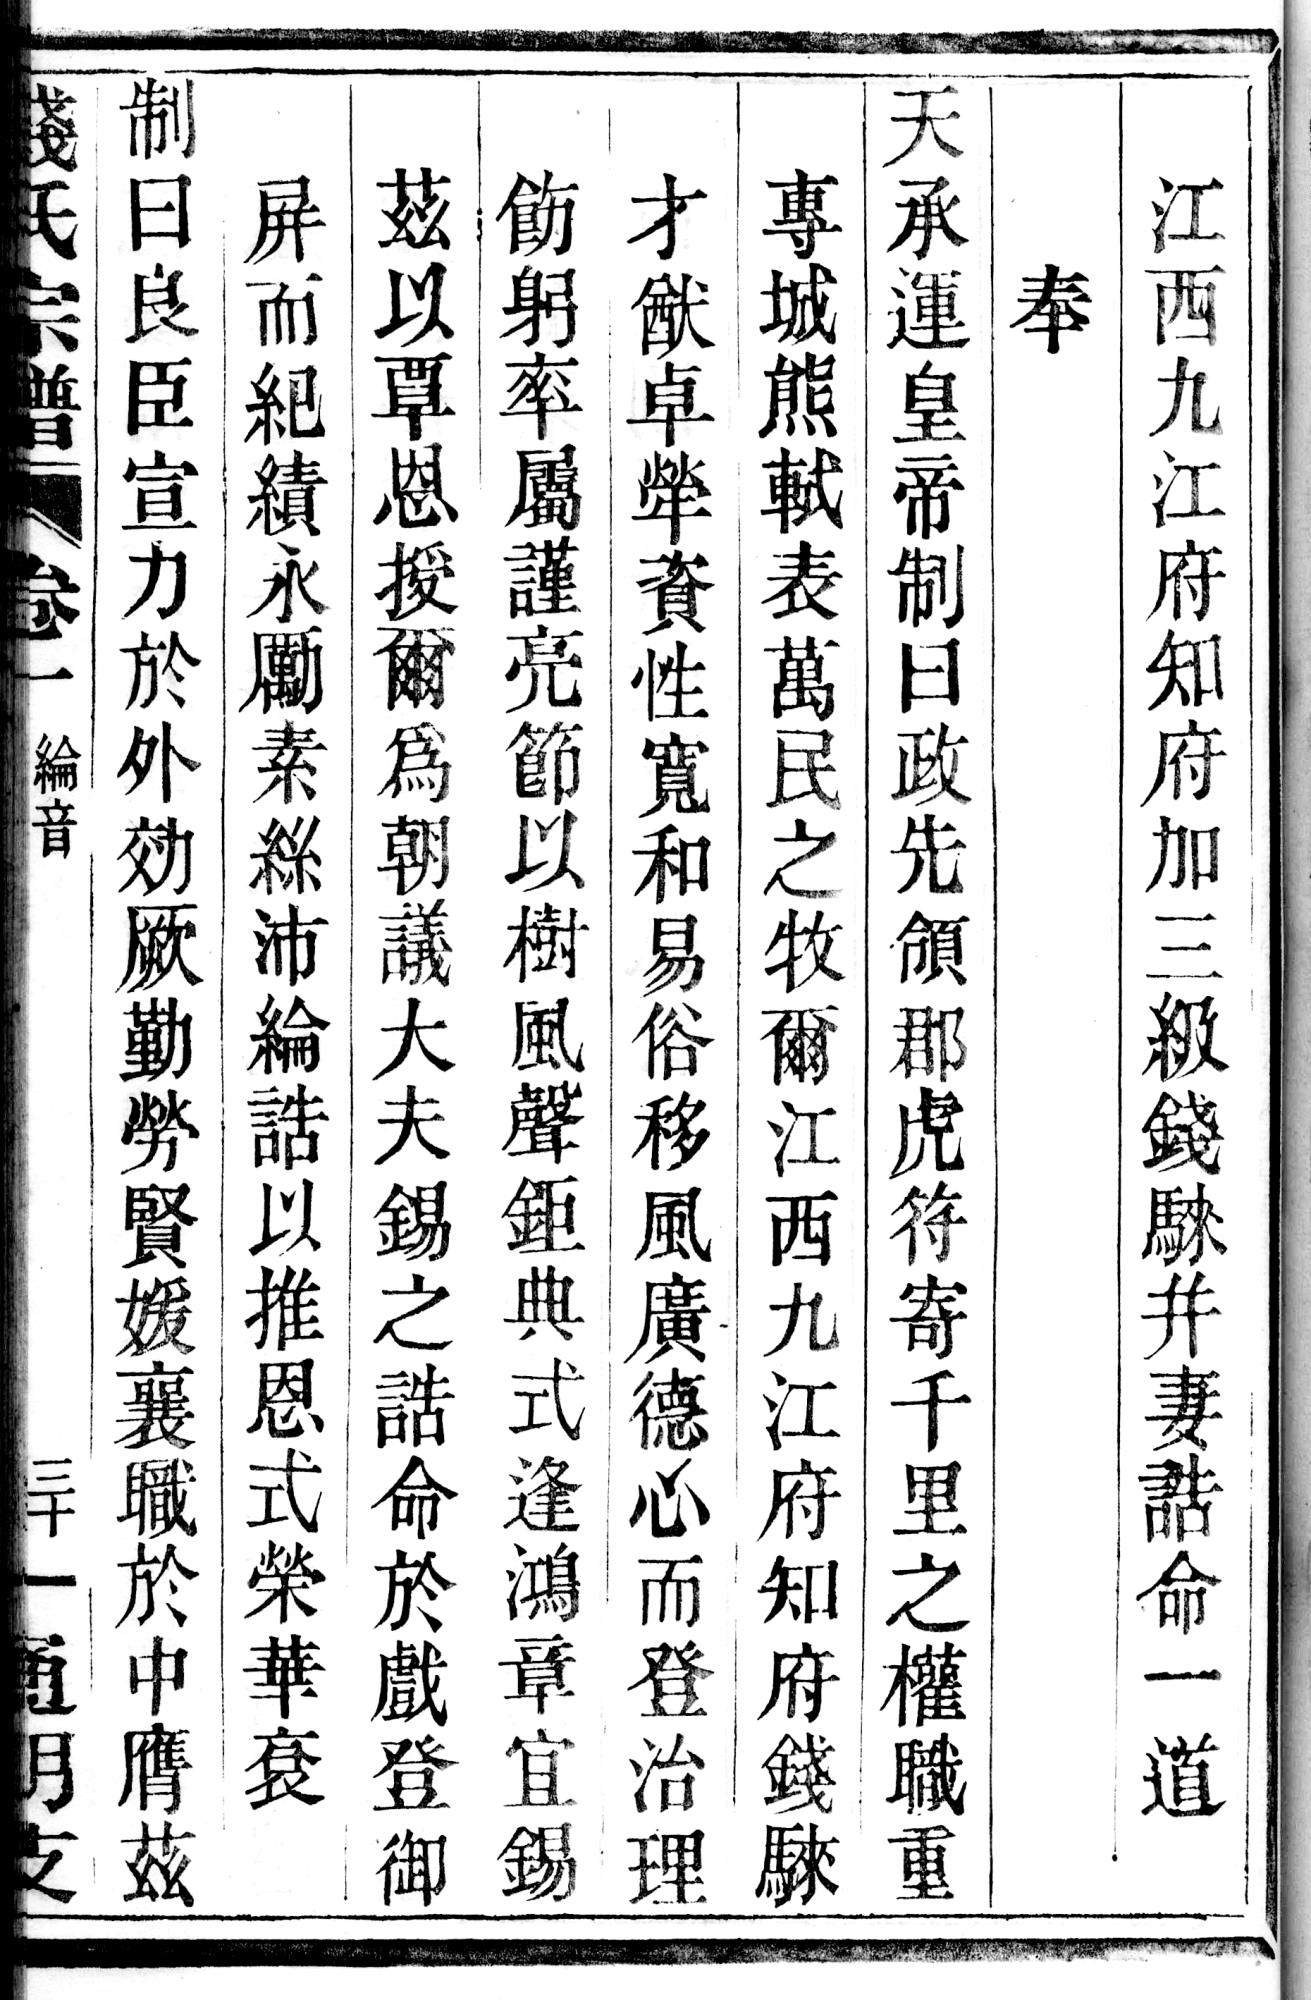 江西九江府知府加三級錢騋幷妻誥命一道
奉
天承運皇帝制曰政先領郡虎符寄千里之權職重
專城熊軾表萬民之牧爾江西九江府知府錢騋
才猷卓犖資性寬和易俗移風廣德心而登治理
飭躬率屬謹亮節以樹風聲鉅典式逢鴻章宜錫
茲以覃恩授爾爲朝議大夫錫之誥命於戲登御
屏而紀績永勵素絲沛綸誥以推恩式榮華袞
制曰良臣宣力於外効厥勤勞賢媛襄職於中膺茲
錢氏宗譜 卷一 綸音 三十一 通明支